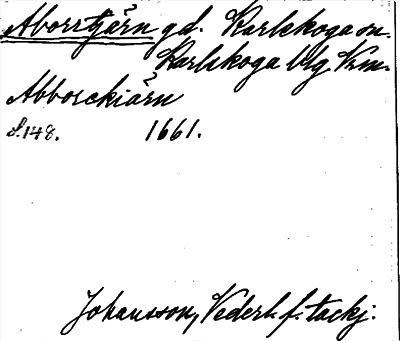 Aborrtjärn gd. Karlskoga sn.
Karlskoga blg Vrm.
Abborckiärn
S.148. 1661.
Johansson, Vederl. f. tackj.